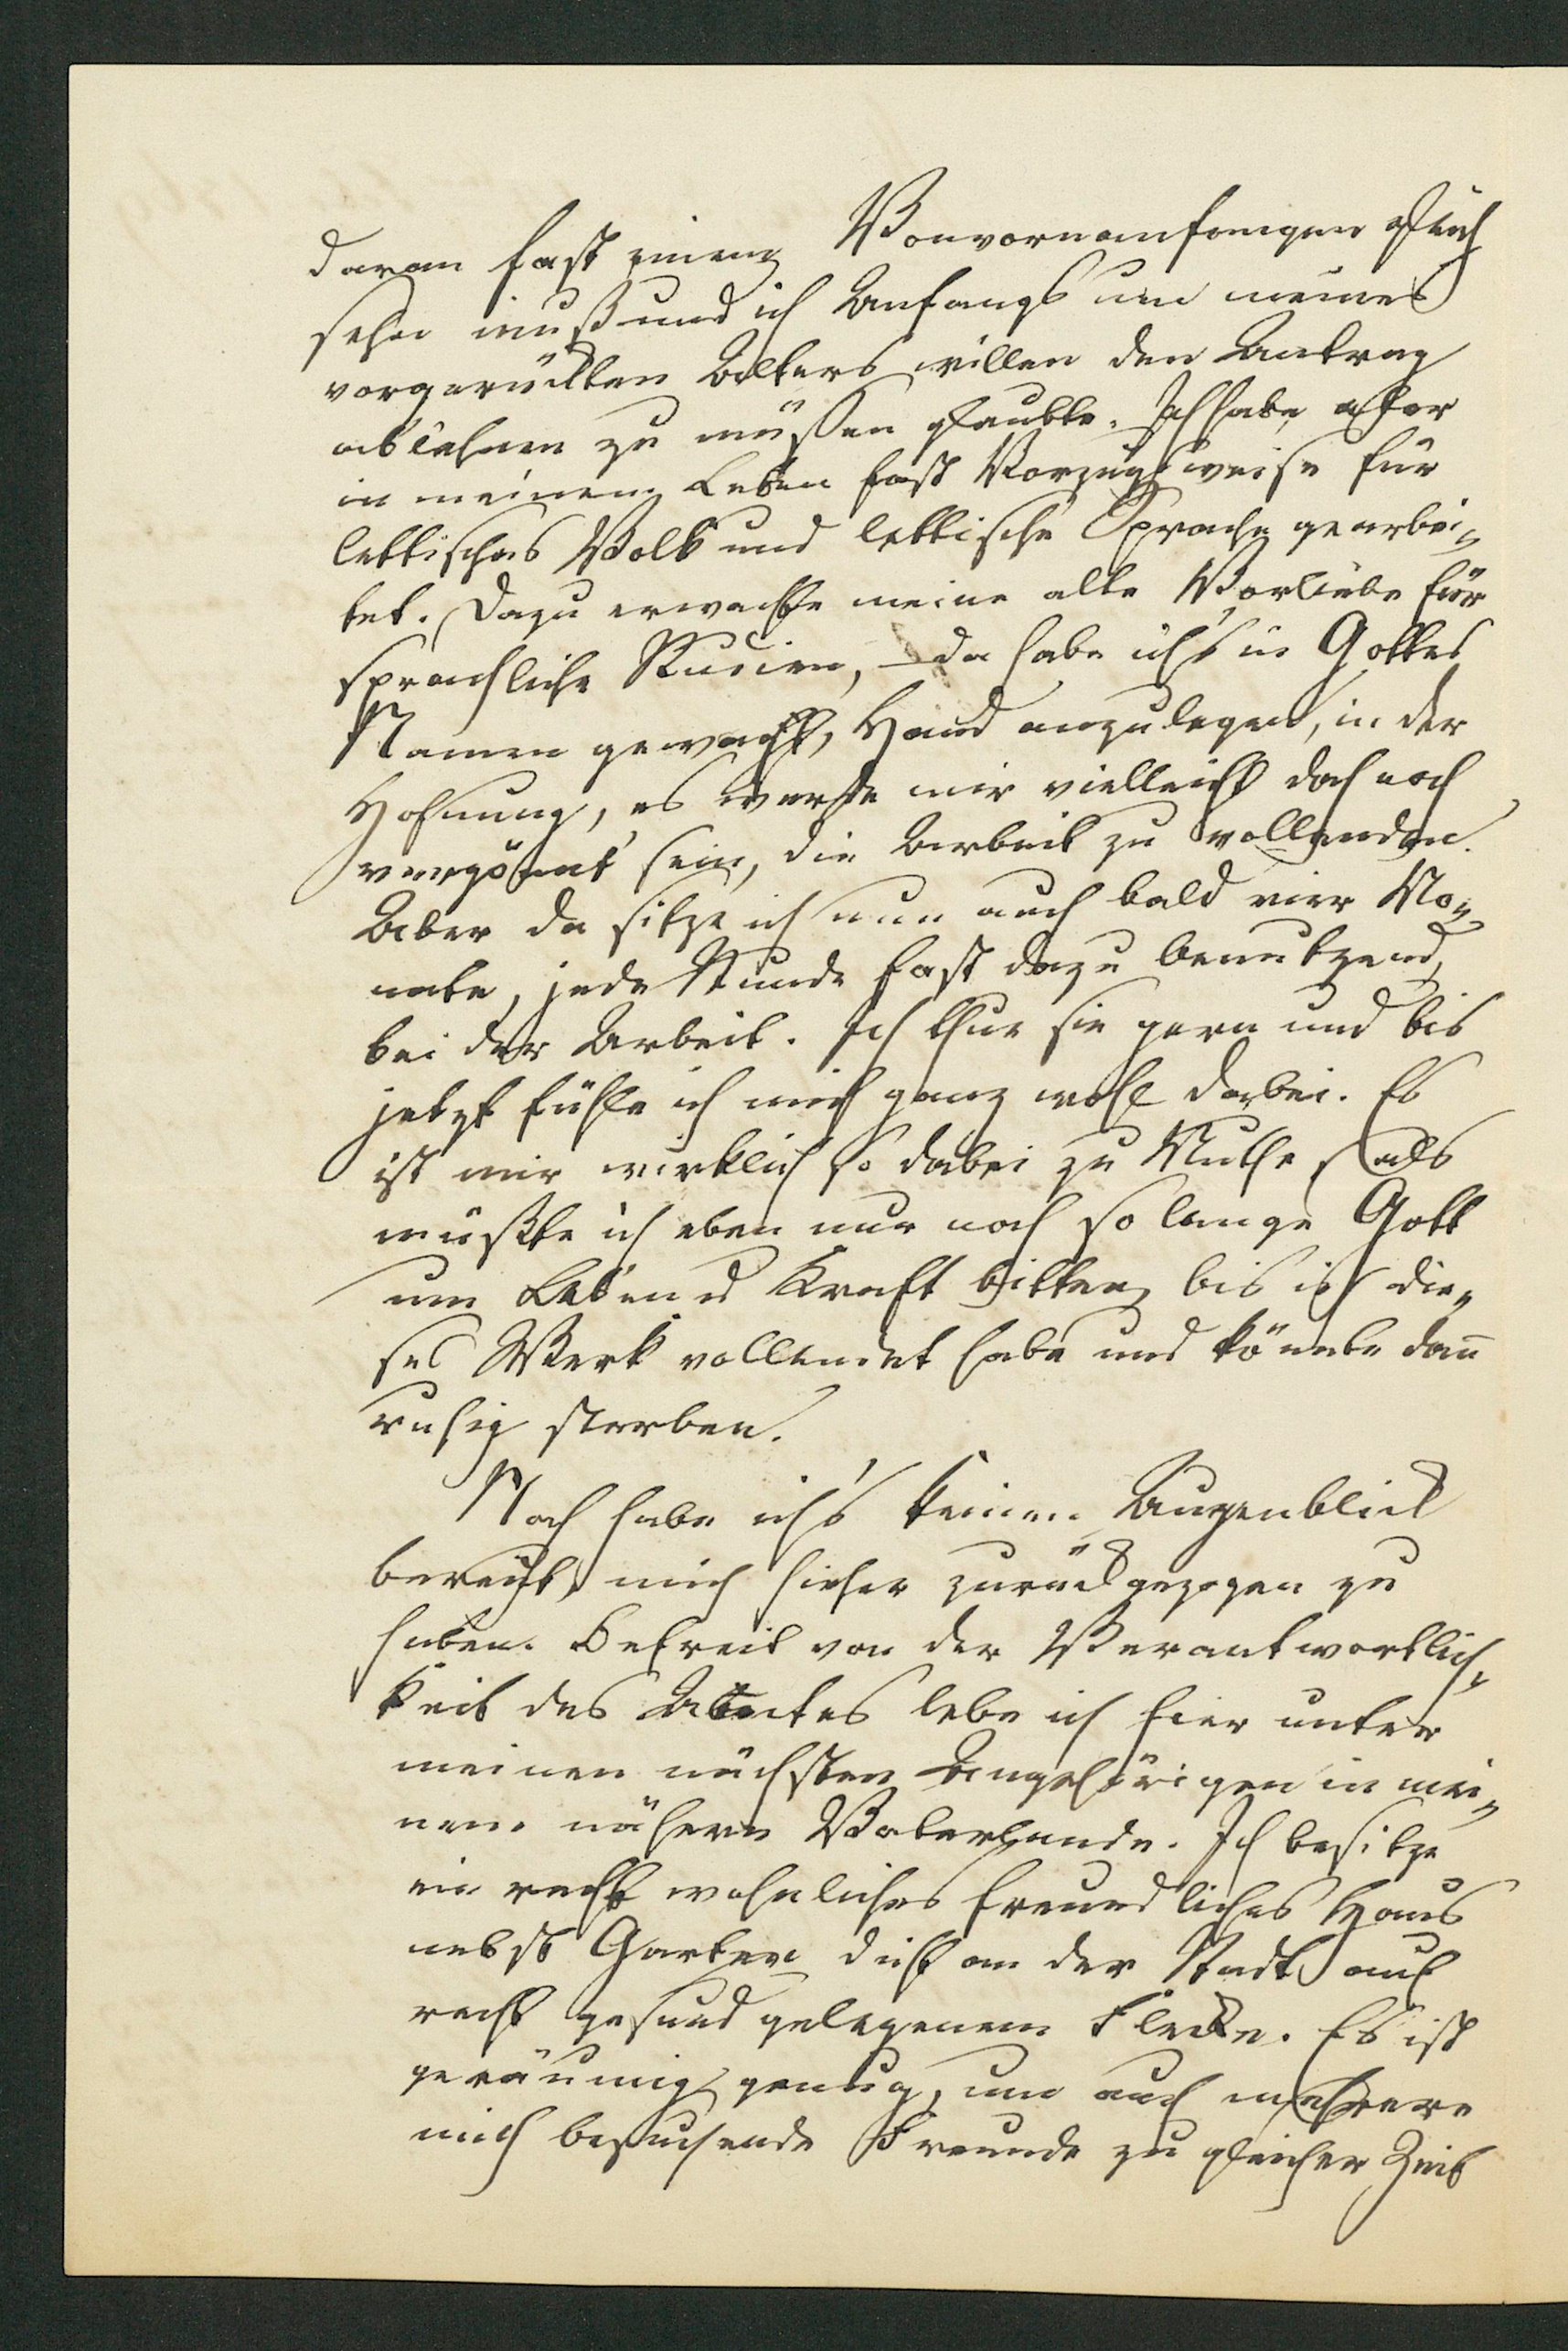 daran fast einem Vonvornanfangen gleich
sehn muß und ich Anfangs um meines
vorgerückten Alters willen den Antrag
ablehnen zu müßen glaubte. Ich habe aber
in meinem Leben fast Vorzugsweise für
lettisches Volk und lettische Sprache gearbei-
tet. Dazu erwachte meine alte Vorliebe für
sprachliche Studien, – da habe ich's in Gottes
Namen gewagt, Hand anzulegen, in der
Hofnung, es werde mir vielleicht doch noch
vergönnt sein, die Arbeit zu vollenden.
Aber da sitze ich nun auch bald vier Mo-
nate, jede Stunde fast dazu benutzend,
bei der Arbeit. Ich thue sie gern und bis
jetzt fühle ich mich ganz wohl dabei. Es
ist mir wirklich so dabei zu Muthe, als
müßte ich eben nur noch so lange Gott
um Leben u Kraft bitten, bis ich die-
ses Werk vollendet habe und könnte dañ
ruhig sterben.
Noch habe ich's keinen Augenblick
bereut, mich hieher zurückgezogen zu
haben. Befreit von der Verantwortlich-
keit des Amtes lebe ich hier unter
meinen nächsten Angehörigen in mei-
nem nähern Vaterlande. Ich besitze
ein recht wohnliches freundliches Haus
nebst Garten dicht an der Stadt auf
recht gesund gelegenem Flecke. Es ist
geräumig genug, um auch mehrere
mich besuchende Freunde zu gleicher Zeit